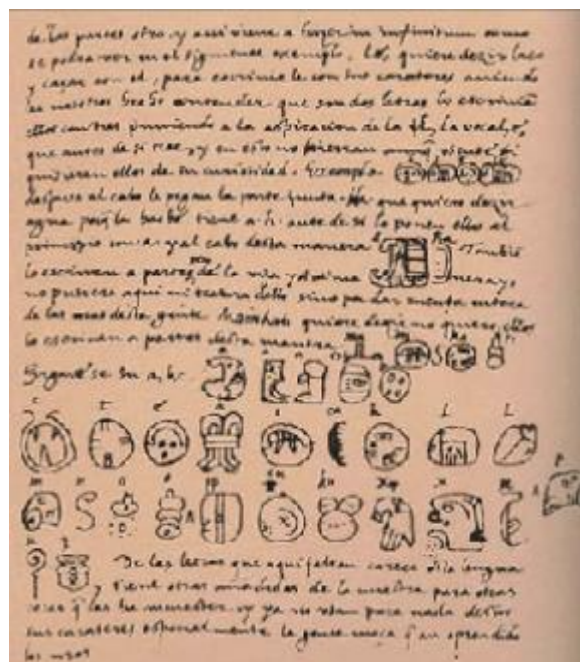 de las partes otro y assi viene a hazer in infinitum como
se podra ver en el siguiente exemplo. Lé, quiere dezir laço
y caçar con el, para escrivirle con sus carateres aviendo
les nosotros hecho entender que son dos letras lo escrivian
ellos con tres puniendo a la aspiracion de la l, la vocal, e,
que antes de si trae, y en esto no hierran
quisieren ellos de su curiosidad. Exemplo.
despues al cabo le pegan la parte junta. Ha que quiere dezir
agua porq la haché tiene a. h. ante de si lo ponen ellos al
principio con a. y al cabo desta manera Tambie
lo escriven a partes de la una y otra manera yo
no pusiera aqui ni tratara dello sino por dar cuenta entera
de las cosas desta gente. Mainkati quiere dezir no quiero, ellos
lo escriven a partes desta manera.
ma i n ka ti
Siguese su a, b, c.
a a a b b
c t e h i ca k l l
m n o o pp cu ku x x u p
u z
De las letras que aqui faltan carece esta lengua
y tiene otras añadidas de la nuestra para otras
cosas q las ha menester y ya no usan para nada destos
sus carateres especialmente la gente moça q an aprendido
los nros